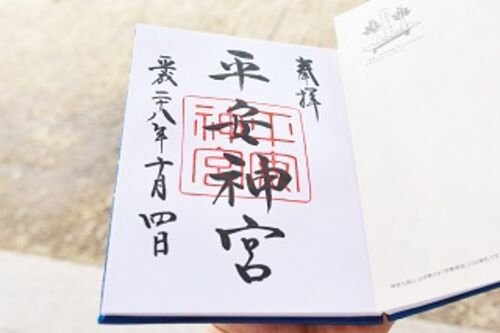 奉拝
平安神宮
平安神宮
平成二十八年十月四日